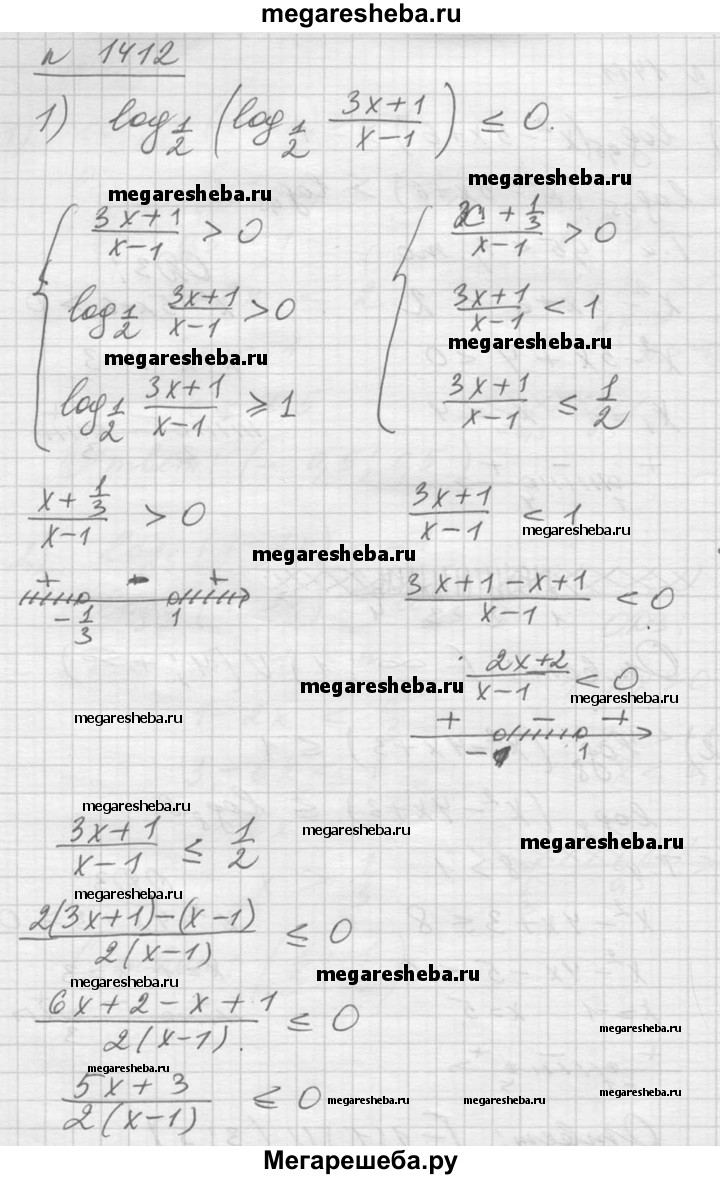 megaresheba.ru
n 1412
1) log_{1/2} (log_{1/2} (3x+1)/(x-1)) ≤ 0.
megaresheba.ru megaresheba.ru
(3x+1)/(x-1) > 0 (x + 1/3)/(x-1) > 0
log_{1/2} (3x+1)/(x-1) > 0 (3x+1)/(x-1) < 1
megaresheba.ru megaresheba.ru
log_{1/2} (3x+1)/(x-1) ⩾ 1 (3x+1)/(x-1) ≤ 1/2
(x + 1/3)/(x-1) > 0 (3x+1)/(x-1) < 1
megaresheba.ru
megaresheba.ru
+ - + (3x+1-x+1)/(x-1) < 0.
-1/3 1
megaresheba.ru (2x+2)/(x-1) < 0
megaresheba.ru
megaresheba.ru + - +
- 1
megaresheba.ru
megaresheba.ru
(3x+1)/(x-1) ≤ 1/2
megaresheba.ru
megaresheba.ru
(2(3x+1)-(x-1))/(2(x-1)) ≤ 0
megaresheba.ru megaresheba.ru
(6x+2-x+1)/(2(x-1)) ≤ 0
megaresheba.ru
megaresheba.ru
(5x+3)/(2(x-1)) ≤ 0
megaresheba.ru megaresheba.ru megaresheba.ru
megaresheba.ru
Мегарешеба.ру